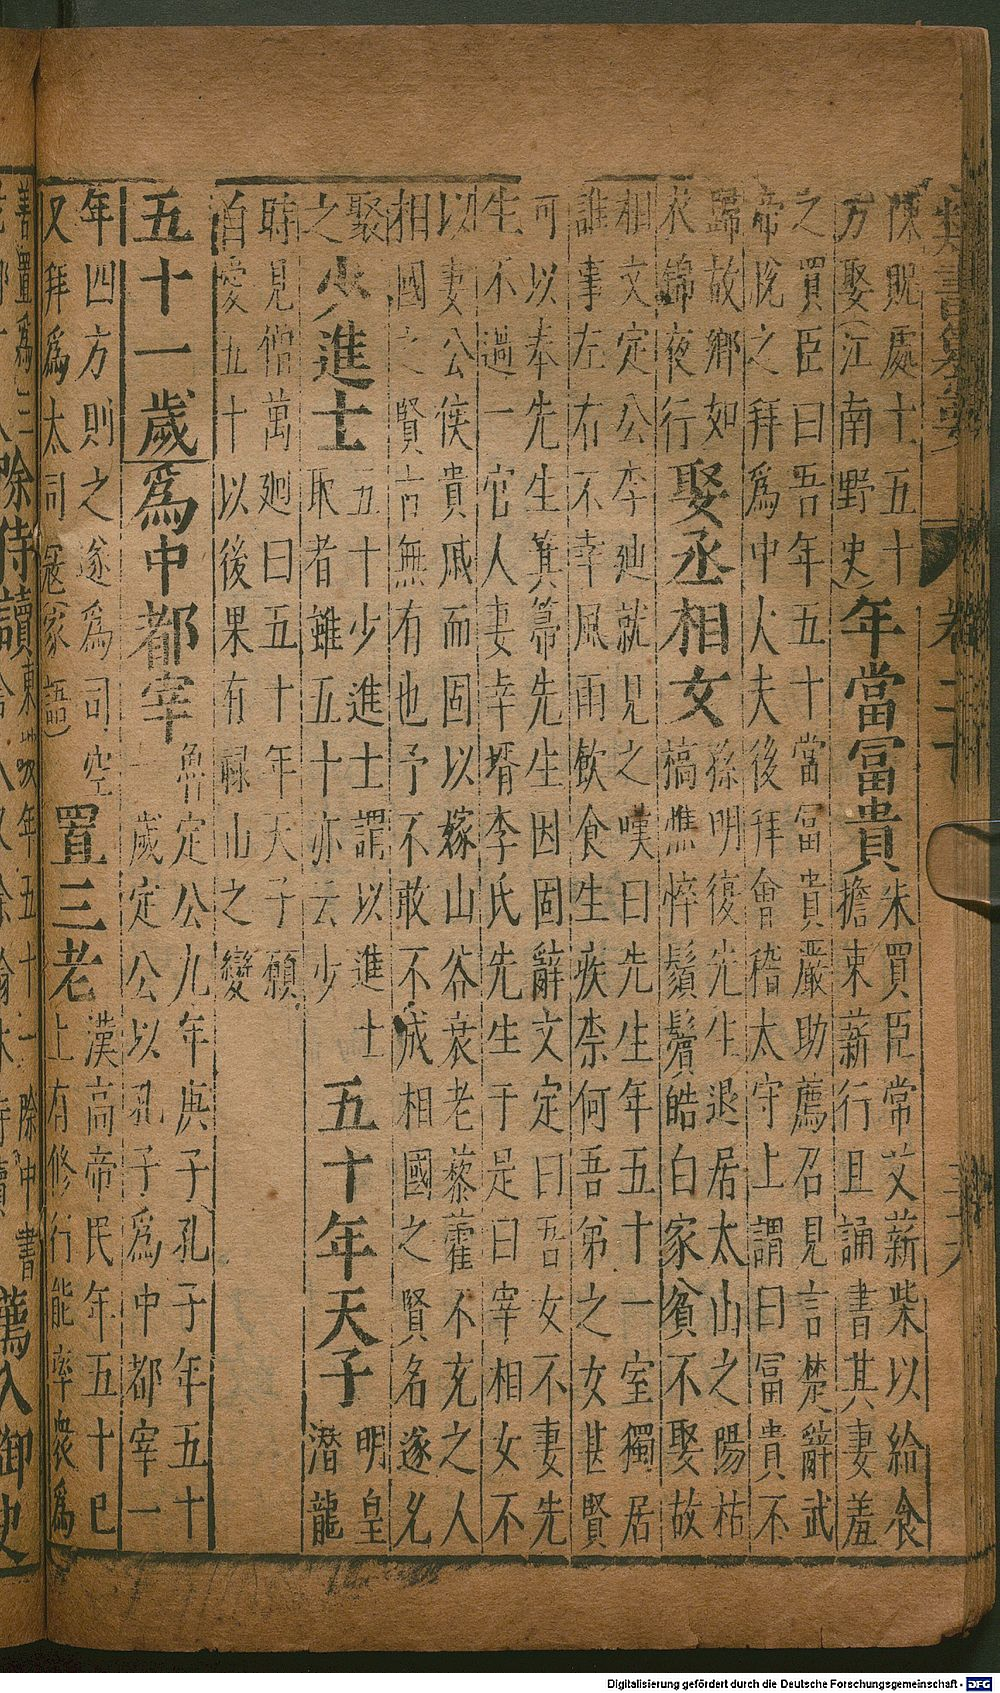 類書纂要 卷二十 三十六
陳貺處士五十
方娶(江南野史)
年當冨貴
朱買臣常艾薪柴以給食
擔束薪行且誦書其妻羞
之買臣曰吾年五十當冨貴嚴助薦召見言楚辭武
帝悅之拜爲中大夫後拜會稽太守上謂曰冨貴不
歸故鄉如
衣錦夜行
娶丞相女
孫明復先生退居太山之陽枯
槁憔悴鬚鬢皓白家貧不娶故
相文定公李廸就見之嘆曰先生年五十一室獨居
誰事左右不幸風雨飲食生疾柰何吾弟之女甚賢
可以奉先生箕箒先生因固辭文定曰吾女不妻先
生不過一官人妻幸壻李氏先生于是曰宰相女不
以妻公侯貴戚而固以嫁山谷衰老藜藿不充之人
相國之賢古無有也予不敢不成相國之賢名遂允
聚
之
少進士
五十少進士謂以進士
取者雖五十亦云少
五十年天子
明皇
潛龍
時見僧萬廻曰五十年天子願
自愛五十以後果有祿山之變
五十一歲
爲中都宰
魯定公九年庚子孔子年五十
一歲定公以孔子爲中都宰一
年四方則之遂爲司空
又拜爲太司寇(家語)
置三老
漢高帝民年五十已
上有修行能率衆爲
善置爲三
除侍讀
東坡年五十一除中書
舍人又除翰林侍讀
薦入御史
Digitalisierung gefördert durch die Deutsche Forschungsgemeinschaft - DFG